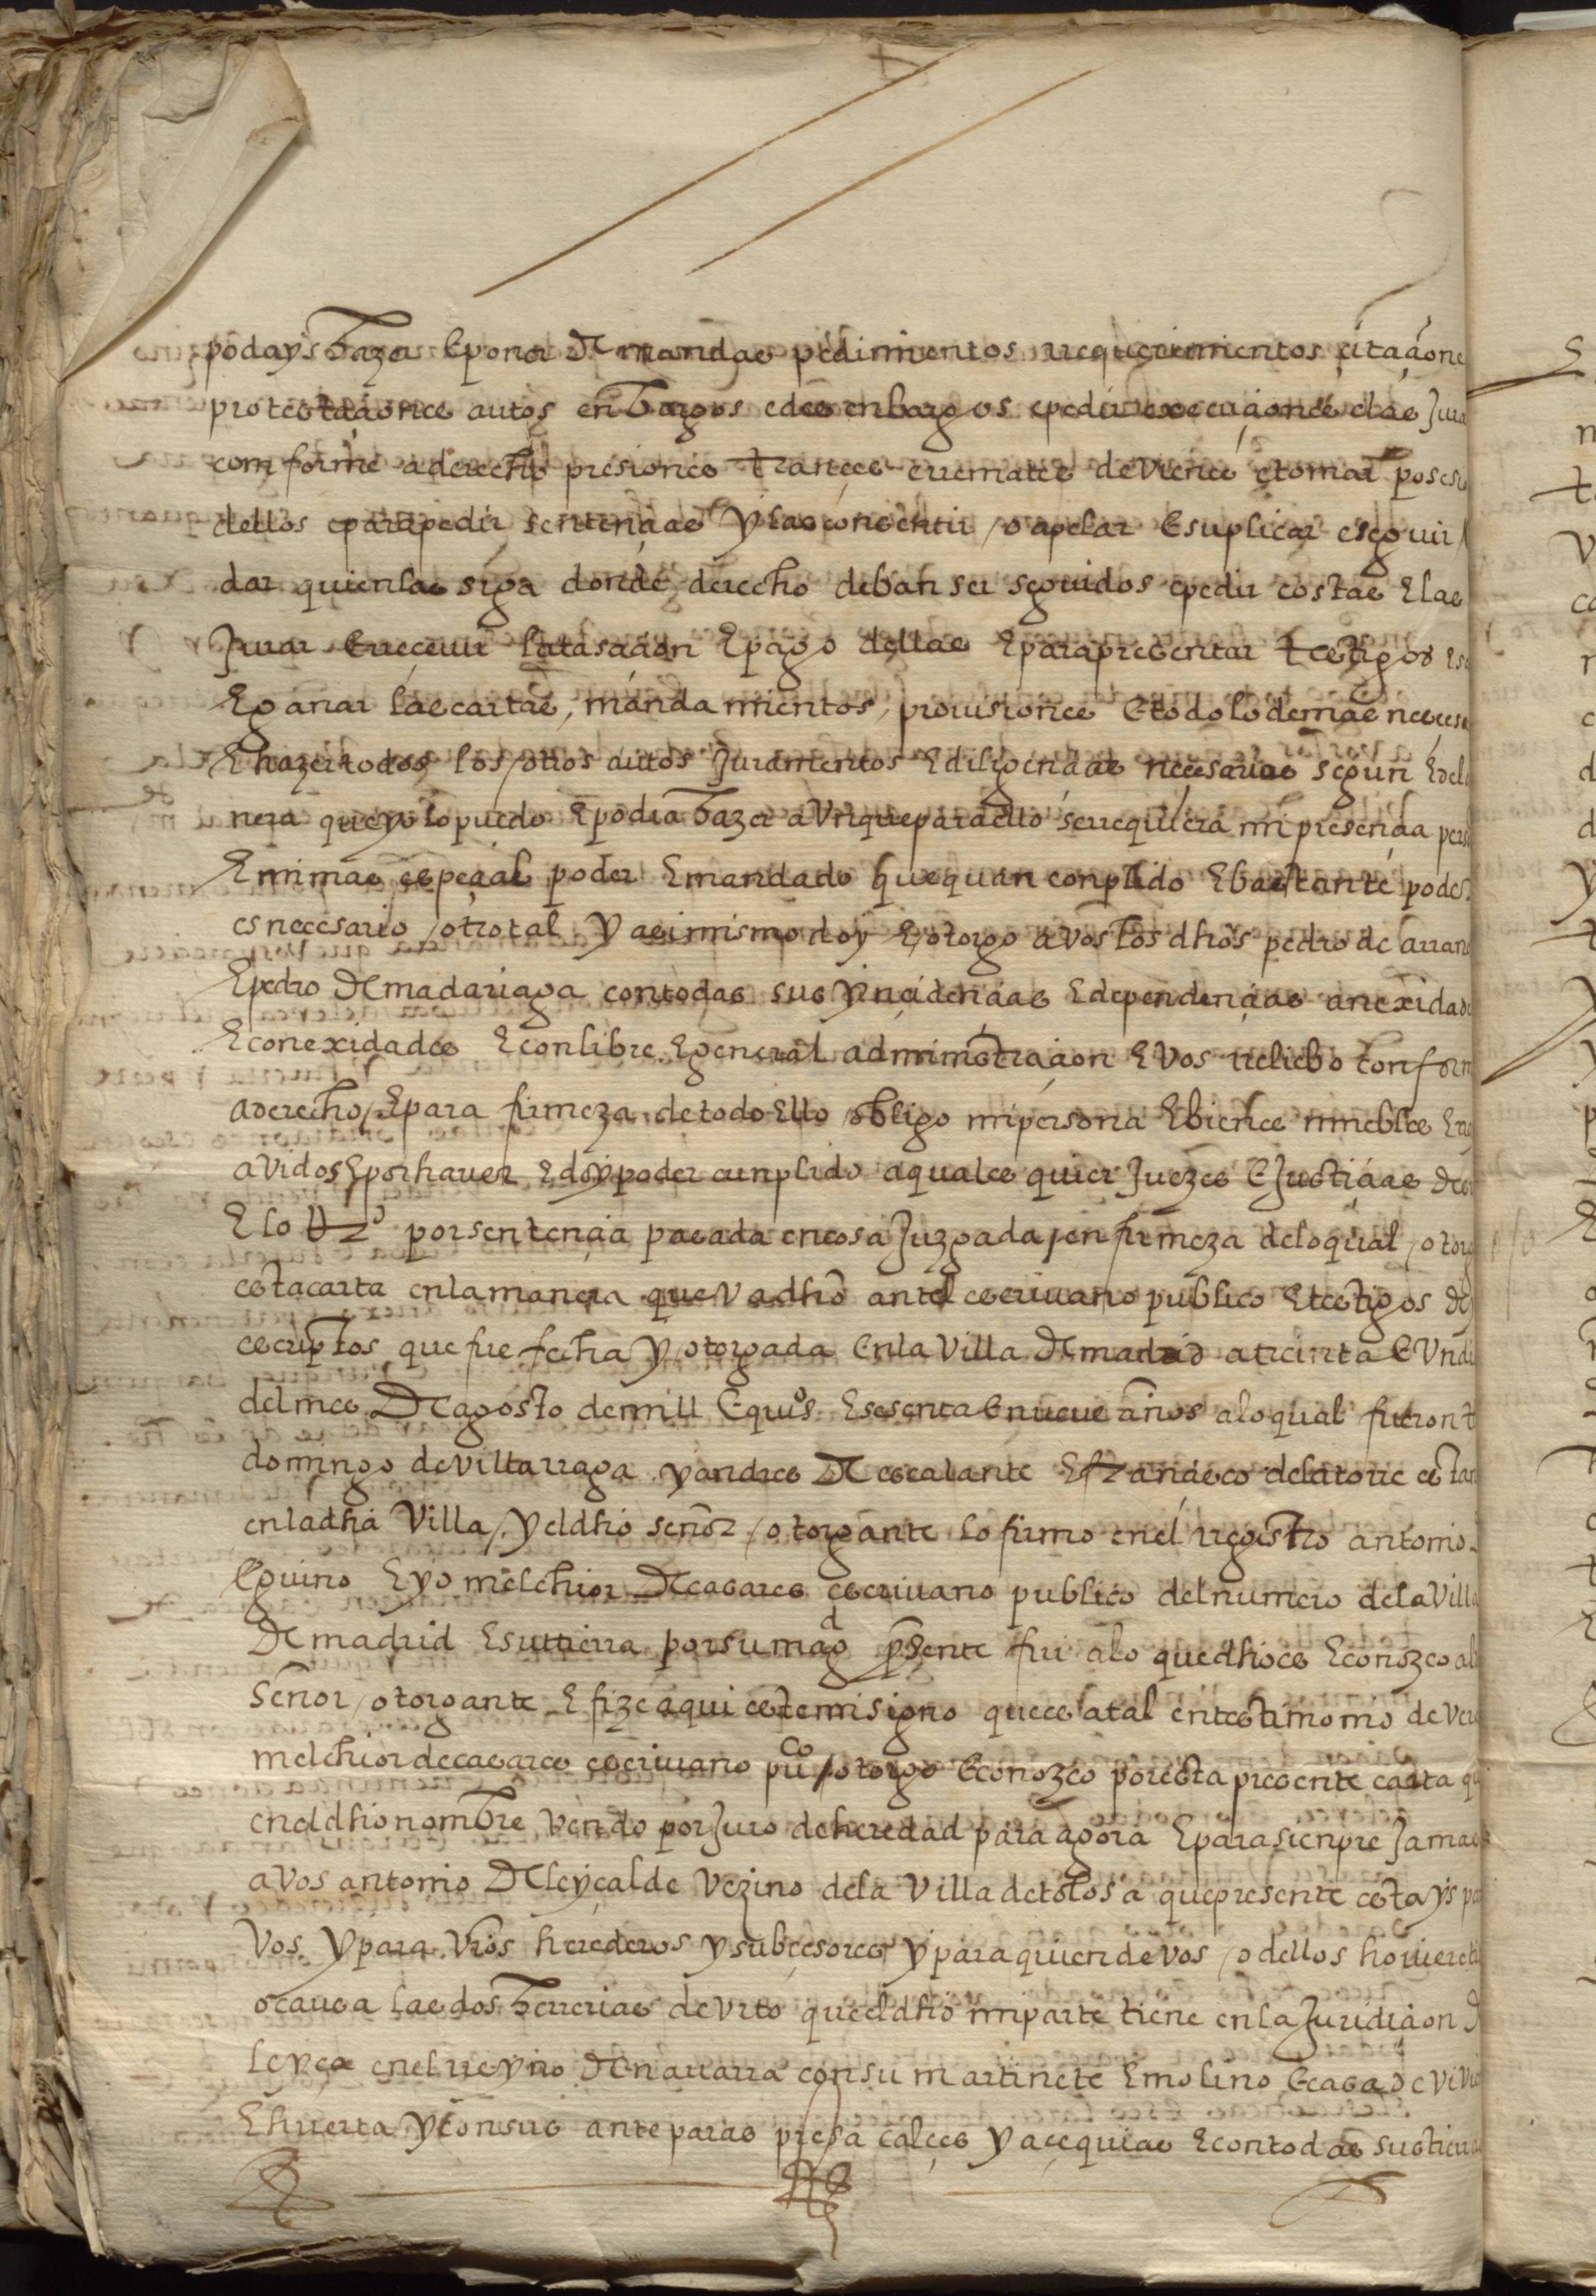 podays hazer E poner Demandas pedimientos rrequerimientos çitaçione
protestaçiones autos enbargos e desenbargos e pedir execuçiones e las Jura
conforme a derecho presiones trançes e rremates de vienes e tomar poses
dellos e para pedir sentençias y las consentir / o apelar E suplicar e seguir
dar quien las siga donde de derecho deban ser seguidos e pedir costas E las
Jurar E rreçeuir la tasaçion E pago dellas E para presentar testigos Es
E ganar las cartas, mandamientos, prouisiones E todo lo demas neçes
E hazer todos los / otros autos Juramentos E diligençias neçesarias segun E de la
nera que yo lo puedo E podia hazer avnque para ello se rrequiera mi presençia pers
E mi mas espeçial poder E mandado que quan conplido E bastante poder
es neçesario / otro tal y asi mismo doy E / otorgo a vos los dhos pedro de arran
E pedro De madariaga con todas sus ynçidençias E dependençias anexidade
E conexidades E con libre E general administraçion E vos rreliebo conform
a derecho / E para firmeza de todo Ello / obligo mi persona E bienes muebles E rray
avidos E por haver E doy poder cunplido a quales quier Juezes E Justiçias De
E lo por sentençia pasada en cosa Juzgada / en firmeza de lo qual / otorg
esta carta en la manera que va dho antel escriuano publico E testigos De
escriptos que fue fecha y / otorgada En la Villa De madrid a treinta E vn di
del mes De agosto de mill E quios E sesenta E nueve años a lo qual fueron t
domingo de villarraga y andres De escalante E françisco de la torre estan
en la dha Villa / y el dho señor / otorgante lo firmo en el rregistro antonio
Eguino E yo melchior De casares escriuano publico del numero de la Villa
De madrid E su tierra por su magd presente fui a lo que dho es E conozco al
Señor / otorgante E fize aqui este mi signo que es a tal en testimonio de ver
melchior de casares escriuano puco / otorgo E conozco por esta presente carta q
en el dho nombre vendo por Juro de heredad para agora E para sienpre Jamas
a vos antonio De leyçalde Vezino de la Villa de tolosa que presente estays pa
Vos y para vros herederos y subçesores y para quien de vos / o dellos hoviere ti
o causa las dos herrerias de vrto que el dho mi parte tiene en la Juridiçion
leyça en el rreyno De nauarra con su martinete E molino E casa de vivi
E huerta y con sus anteparas presa calçes y açequias E con todas sus tierra